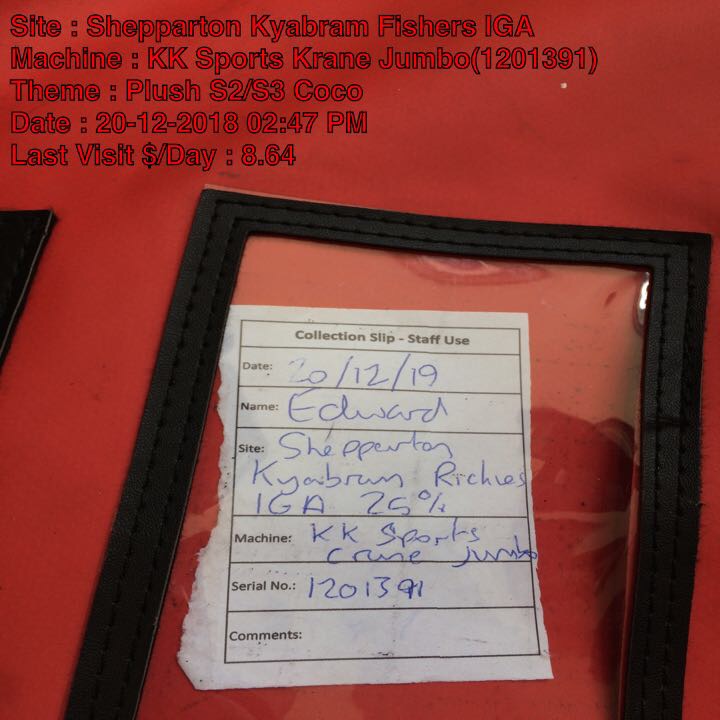 Site : Shepparton Kyabram Fishers IGA
Machine : KK Sports Krane Jumbo(1201391)
Theme : Plush S2/S3 Coco
Date : 20-12-2018 02:47 PM
Last Visit $/Day : 8.64
Collection Slip - Staff Use
Date: 20/12/19
Name: Edward
Site: Shepparton
Kyabram Richies
IGA 25%
Machine: KK Sports
Crane Jumbo
Serial No.: 1201391
Comments: